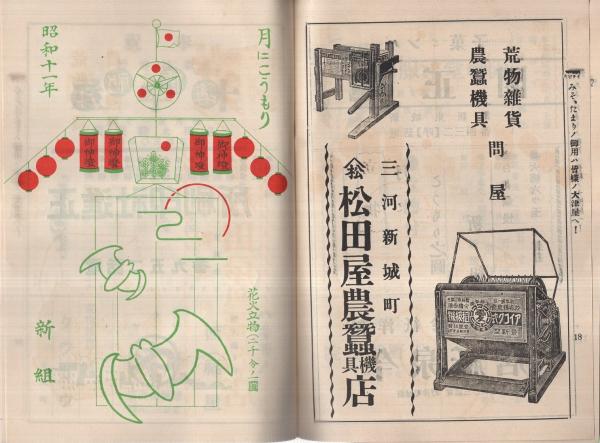 みそ、たまりノ御用ハ皆様ノ大津屋へ!
荒物雜貨
農蠶機具
問屋
三河新城町
松
松田屋農蠶機具店
アイコク式
18
月にこうもり
御神燈
御神燈
御神燈
御神燈
花火立物(二十分ノ一圖)
昭和十一年
新組